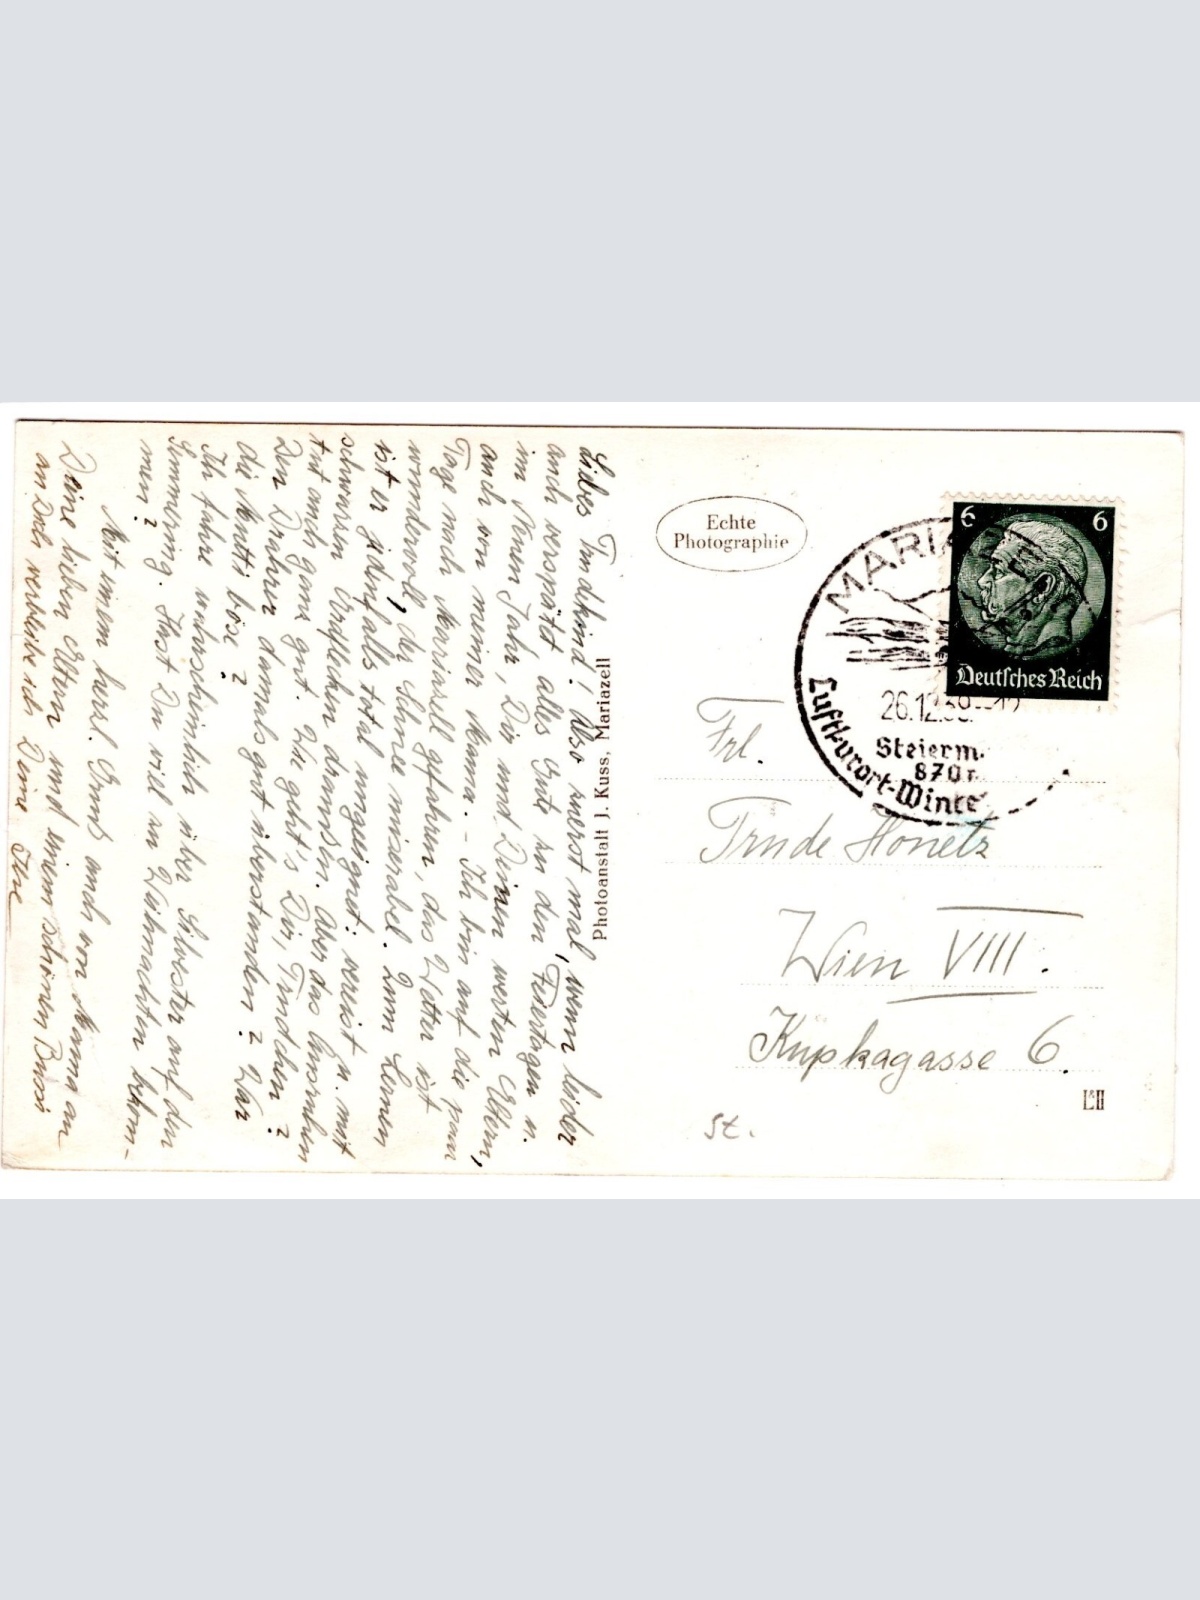 Liebes Trudlkind! Also zuerst mal, wenn leider
auch verspätet, alles Gute zu den Feiertagen u.
im Neuen Jahr, Dir und Deinen werten Eltern,
auch von meiner Mama. - Ich bin auf die paar
Tage nach Mariazell gefahren, das Wetter ist
wundervoll, der Schnee miserabel. Zum Lernen
ist er jedenfalls total ungeeignet: vereist u. mit
schwarzen Erdflecken draussen. Aber das Ausruhen
tut auch ganz gut. Wie geht's Dir, Trudchen?
Den Drahrer damals gut überstanden? War
die Mutti böse?
Ich fahre wahrscheinlich über Silvester auf den
Semmering. Hast Du viel zu Weihnachten bekom-
men?
Mit einem herzl. Gruss auch von Mama an
Deine lieben Eltern und einem schönen Bussi
an Dich verbleibe ich Deine
Photoanstalt J. Kuss, Mariazell
Echte
Photographie
6 6
Deutsches Reich
MARIA
26.12.39.-12
Steierm.
870
Luftkurort-Winte
Frl.
Trude Honetz
Wien VIII.
Kupkagasse 6.
St.